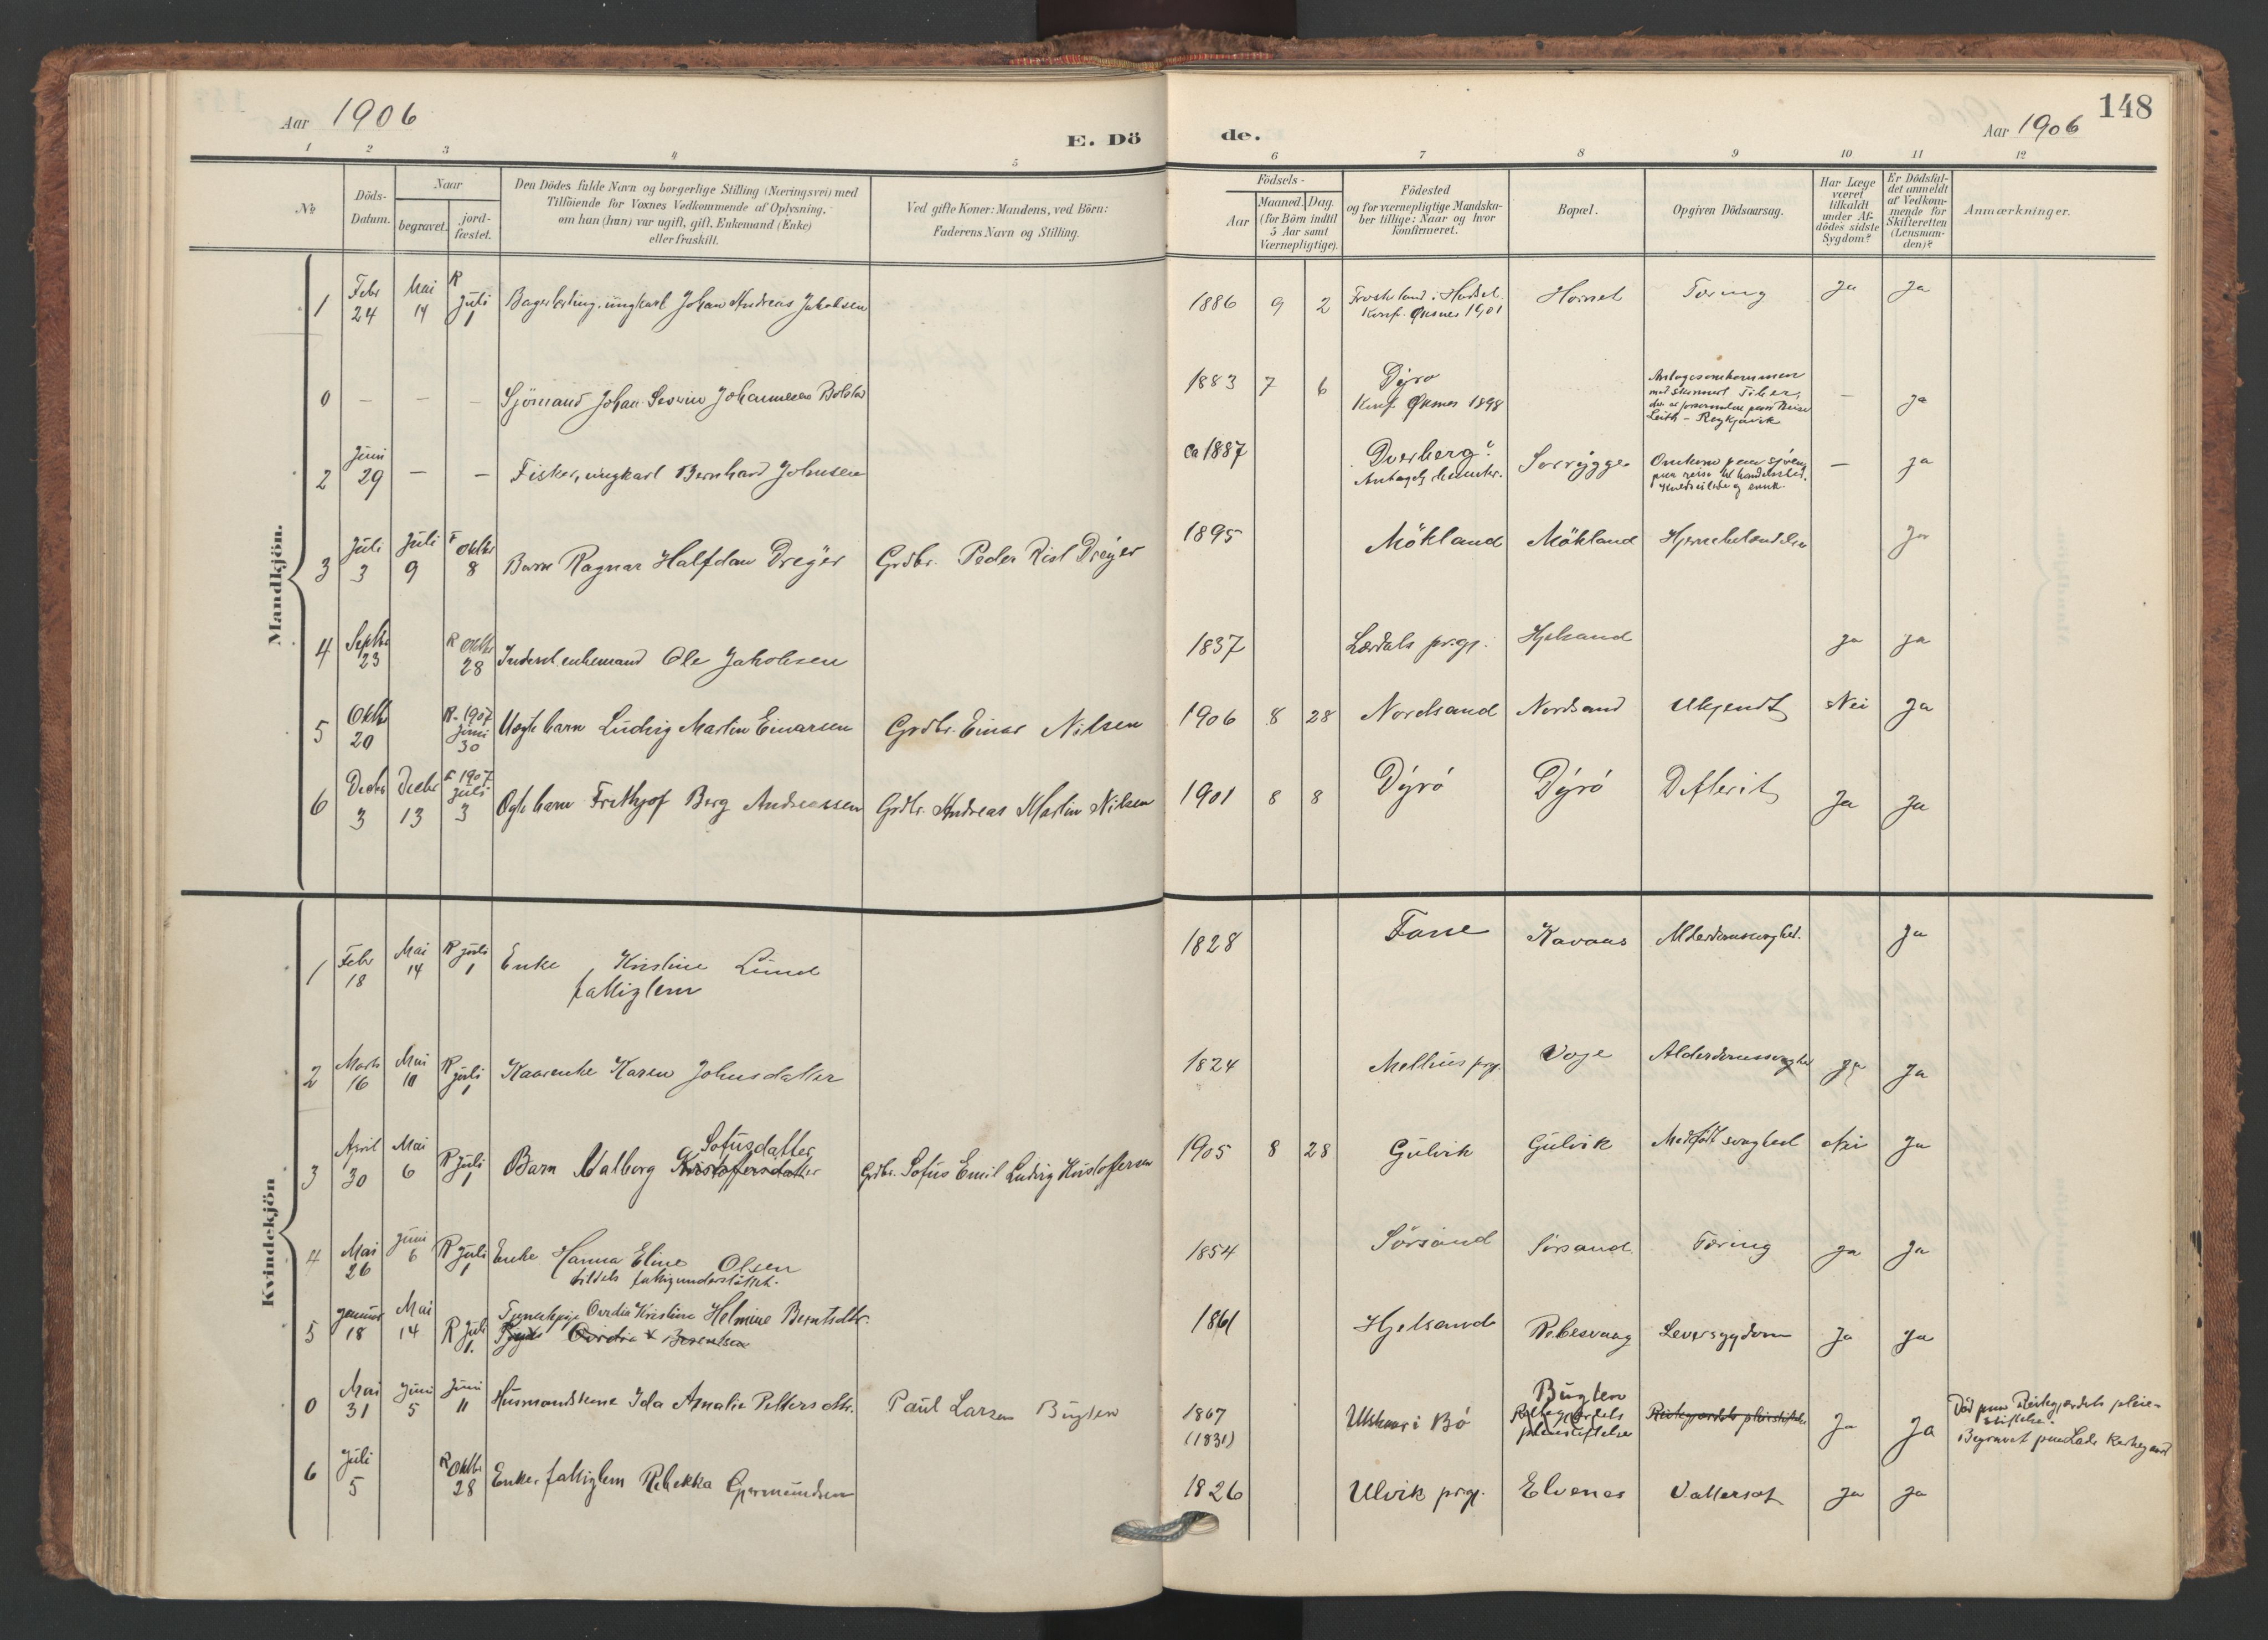 Aar 1906
E. Dö
de.
Aar 1906
148
1 2 3 4 5
6 7 8 9 10 11 12
№
Döds-
Datum.
Naar
begravet.
jord-
fæstet.
Den Dödes fulde Navn og borgerlige Stilling (Næringsvei) med
Tilföiende for Voxnes Vedkommende af Oplysning,
om han (hun) var ugift, gift, Enkemand (Enke)
eller fraskilt.
Ved gifte Koner: Mandens, ved Börn:
Faderens Navn og Stilling.
Födsels-
Aar
Maaned. Dag.
(for Börn indtil
5 Aar samt
Værnepligtige).
Födested
og for værnepligtige Mandska-
ber tillige: Naar og hvor
konfirmeret.
Bopæl.
Opgiven Dödsaarsag.
Har Læge
været
tilkaldt
under Af-
dödes sidste
Sygdom?
Er Dödsfal-
det anmeldt
af Vedkom-
mende for
Skifteretten
(Lensman-
den)?
Anmærkninger.
Mandkjön.
1 Febr 24 Mai 14 R Juli 1 ungkarl Johan Andreas Jakobsen 1886 9 2
Konf. Øksnes 1901
Tæring Ja Ja
0 — — — Sjömand Johan Severin Johannesen 1883 7 6 Dyrø
Konf. Øksnes 1898
Leith - Reykjavik
— Ja
2 Juni 29 — — Fisker, ungkarl Bernhard Johnsen Ca 1887 Dverberg?
— Ja
3 Juli 3 Juli 9 F Oktbr 8 Barn Ragnar Halfdan Dreyer Grdbr. Peder Rist Dreyer 1895 Mökland Mökland Ja
4 Septbr 23 R Oktbr 28 Inderst, enkemand Ole Jakobsen 1837 Lærdals prgj. Hjelsand Ja Ja
5 Oktbr 20 R. 1907 Juni 30 Ugte barn Ludvig Martin Einarsen Grdbr. Einar Nilsen 1906 8 28 Nordsand Nordsand Ukjendt Nei Ja
6 Decbr 3 Decbr 13 F 1907 Juli 3 Ægte barn Frithjof Berg Andreassen Grdbr. Andreas Martin Nilsen 1901 8 8 Dyrö Dyrö Difterit Ja Ja
Kvindekjön
1 Febr 18 Mai 14 R Juli 1 Enke, Kristine Lund 1828 Kavaas Alderdomssvaghed. Ja
fattiglem
2 Marts 16 Mai 10 R Juli 1 Kaarenke Karen Johnsdatter 1824 Melhus prgj. Voje Alderdomssvaghed Ja Ja
Sofusdatter
3 April 30 Mai 6 R Juli 1 Barn Valborg Kristoffersdatter Grdbr. Sofus Emil Ludvig Kristoffersen 1905 8 28 Gulvik Gulvik Medfödt svaghed Nei Ja
4 Mai 26 Juni 6 R Juli 1 Enke Hanna Eline Olsen 1854 Sörsand Sörsand Tæring Ja Ja
tildels fattigunderstöttet.
5 Januar 18 Mai 14 R Juli 1. Tjenestepige Ovedia Kristine Helmine Berntsdtr. 1861 Hjelsand Rebesvaag Leversygdom Ja Ja
Pige Ovedia K Berentsen
0 Mai 31 Juni 5 Juni 11 Husmandskone Ida Amalie Petters dtr. Paul Larsen Bugten 1867 i Bö Bugten
(1831)
Reitegjærdets pleiestiftelse
Reitegjærdets pleiestiftelse Ja Ja
Död paa Reitgjærdets pleie-
stiftelse.
Begravet paa Lade Kirkegaard
6 Juli 5 R Oktbr 28 Enke, fattiglem Rebekka Gjermundsen 1826 Ulvik prgj. Elvenes Vattersot Ja Ja